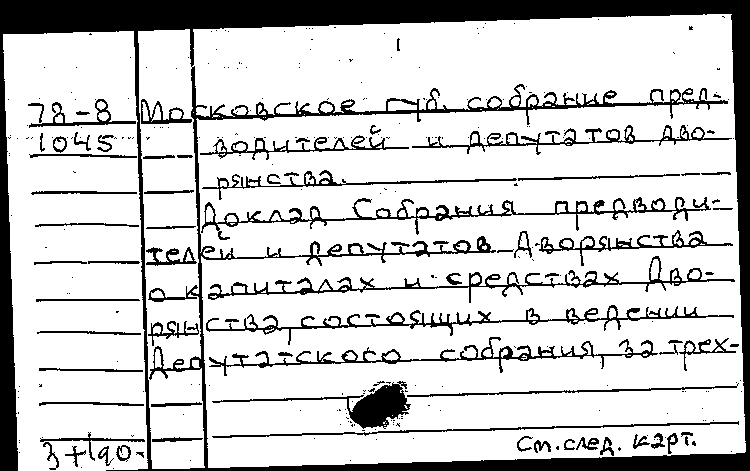 78-8 Московское губ. собрание пред-
1045 водителей и депутатов дво-
рянства.
Доклад Собрания предводи-
телей и депутатов Дворянства
о капиталах и средствах Дво-
рянства, состоящих в ведении
Депутатского собрания, за трех-
См. след. карт.